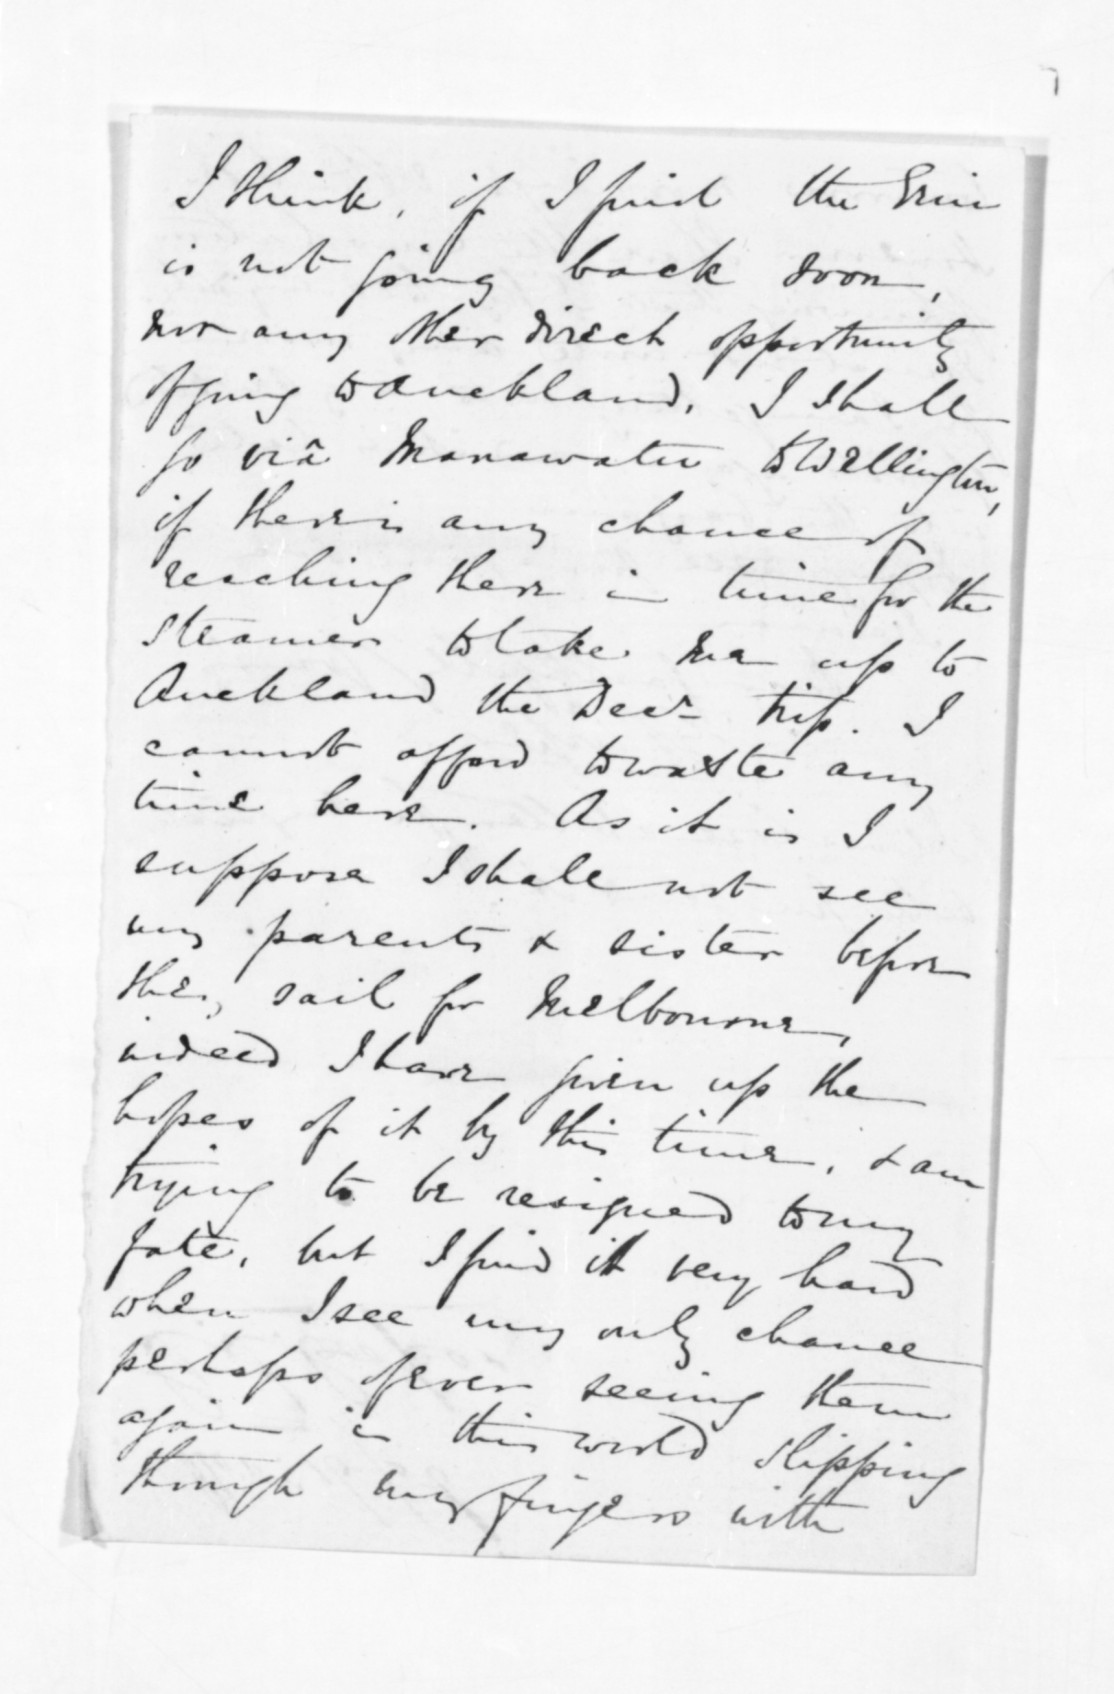 I think, if I find the Erin
is not going back soon,
nor any other direct opportunity
of going to Auckland, I shall
go viâ Manawatu to Wellington,
if there is any chance of
reaching there in time for the
steamer to take me up to
Auckland the Decr trip. I
cannot afford to waste any
time here. As it is I
suppose I shall not see
my parents & sister before
they sail for Melbourne,
indeed I have given up the
hopes of it by this time, & am
trying to be resigned to my
fate, but I find it very hard
when I see my only chance
perhaps of ever seeing them
again in this world slipping
through my fingers with